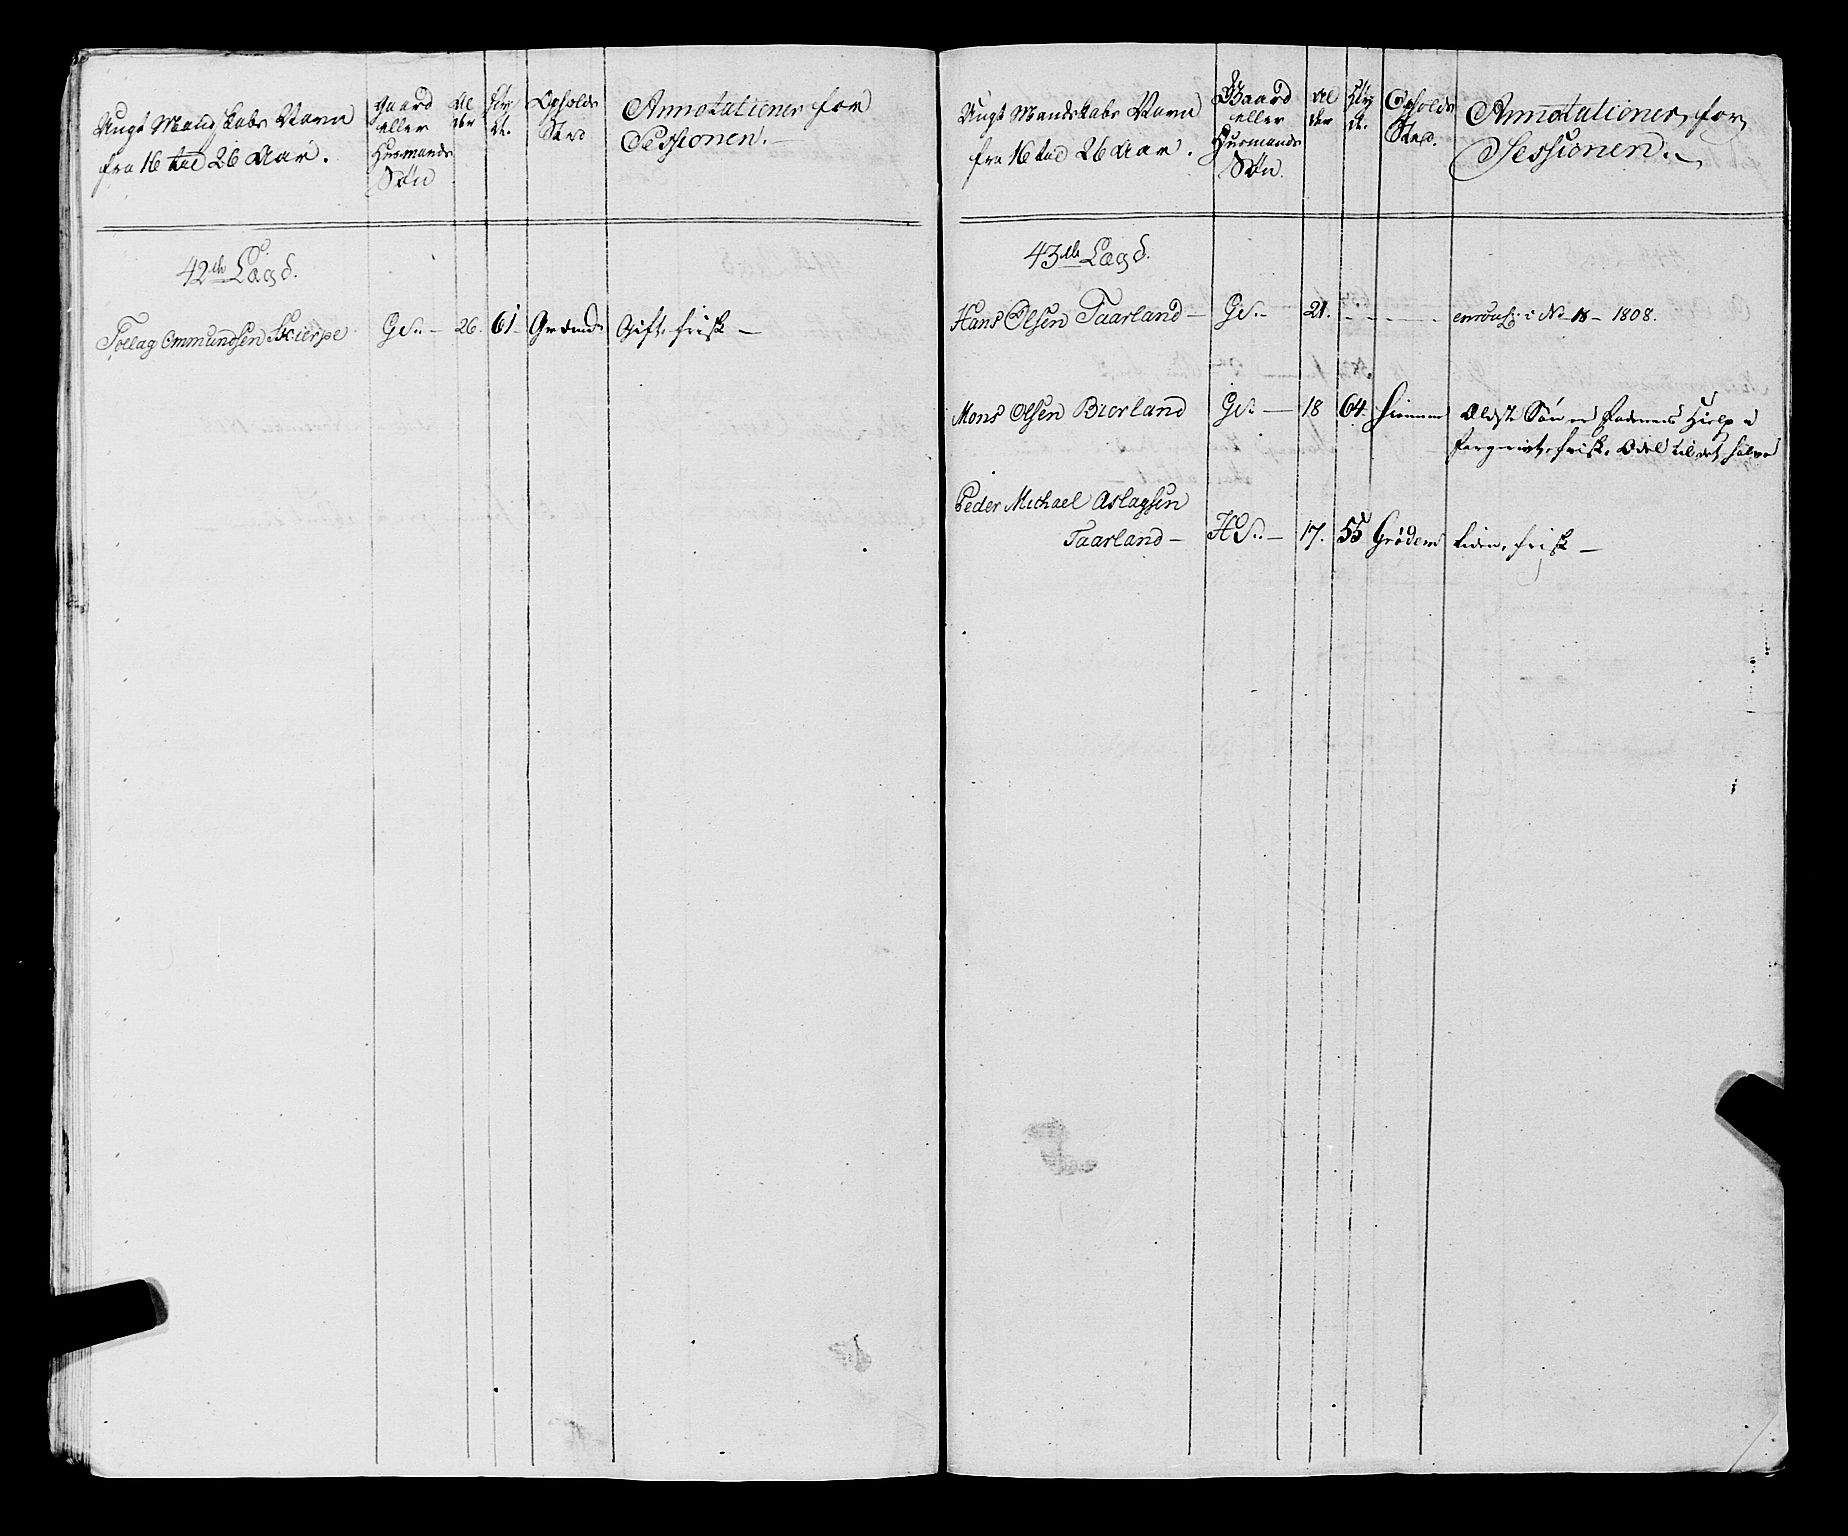 Ungt Mandskabs Navn
fra 16 til 26 Aar.
Gaard
eller
Husmands
Søn
Al
der
Høy
dt.
Opholds
Sted
Annotationer for
Sessionen.
42de Lægd.
Tollag Ommundsen Skierpe GS. 26. 61 Grøends Gift, frisk
Ungt Mandskabs Navn
fra 16 til 26 Aar.
Gaard
eller
Husmands
Søn.
Al
der
Høy
dt.
Opholds
Sted.
Annotationer for
Sessionen.
43de Lægd.
Hans Olsen Taarland GS. 21. i No 18 - 1808.
Mons Olsen Bierland GS. 18 64. hiemme Ældste Søn er Faderens Hielp
frisk. Odel til det halve
Peder Michael Aslagsen
Taarland HS. 17. 55 Grødem liden, frisk